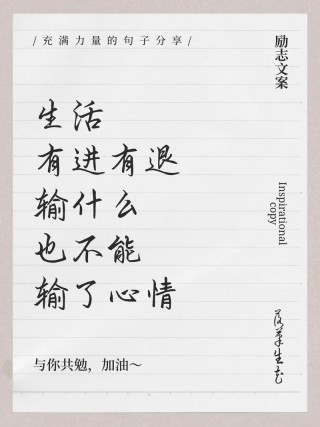 /充满力量的句子分享/
励志文案
生活
有进有退
输什么
也不能
输了心情
Inspirational
copy
落笔生花
与你共勉，加油～